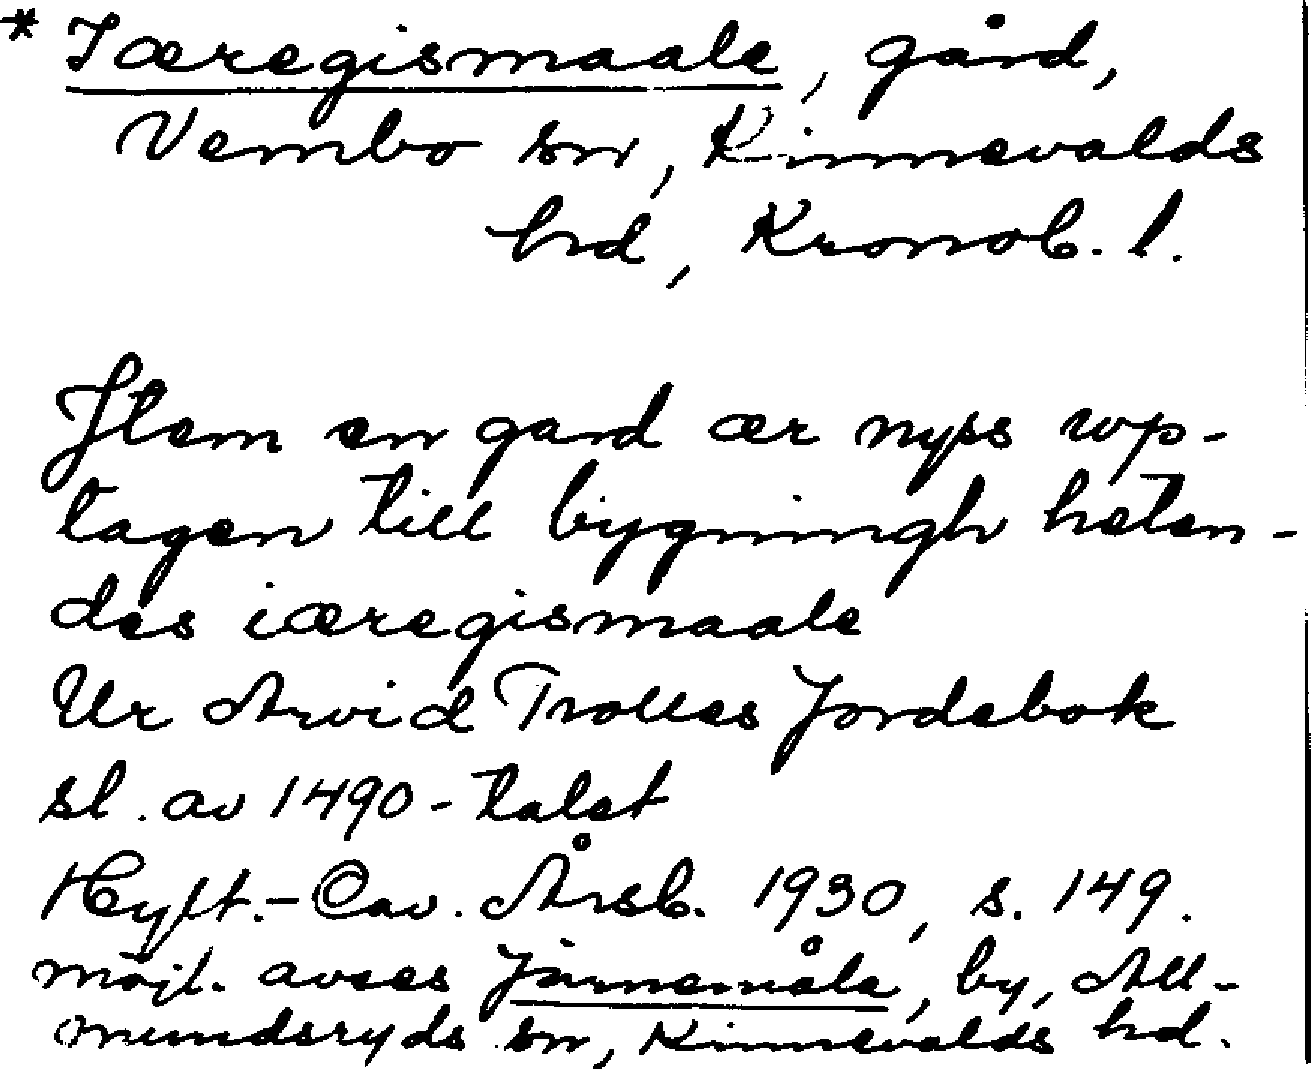 * Iæregismaale, gård,
Vembo sn, Kinnevalds
hd, Kronob. l.
Item en gard ær nyss wp-
tagen till bygningh heten-
des iæregismaale
Ur Arvid Trolles Jordebok
sl. av 1490-talet
Hylt.-Cav. Årsb. 1930, s. 149.
möjl. avses Järnemåla, by, All-
mundsryds sn, Kinnevalds hd.